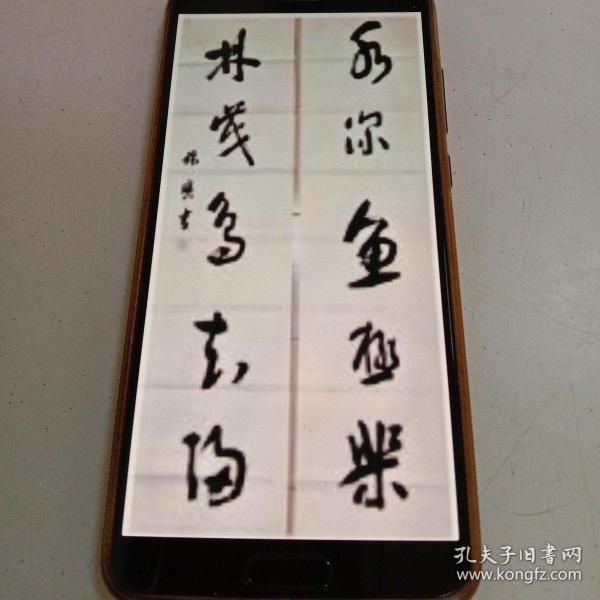 水深鱼極樂
林茂鸟知归
孔夫子旧书网
www.kongfz.com